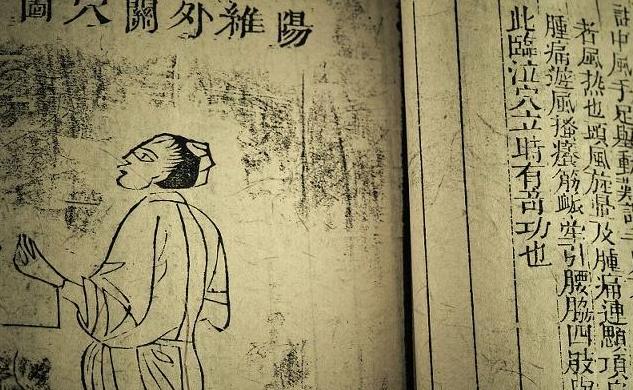 陽維外關穴圖
中風手足舉動難
者風热也頭風旋暈及腫痛連顋項
腫痛遊風搔癢筋脈牽引腰脇四肢
此臨泣穴立時有奇功也